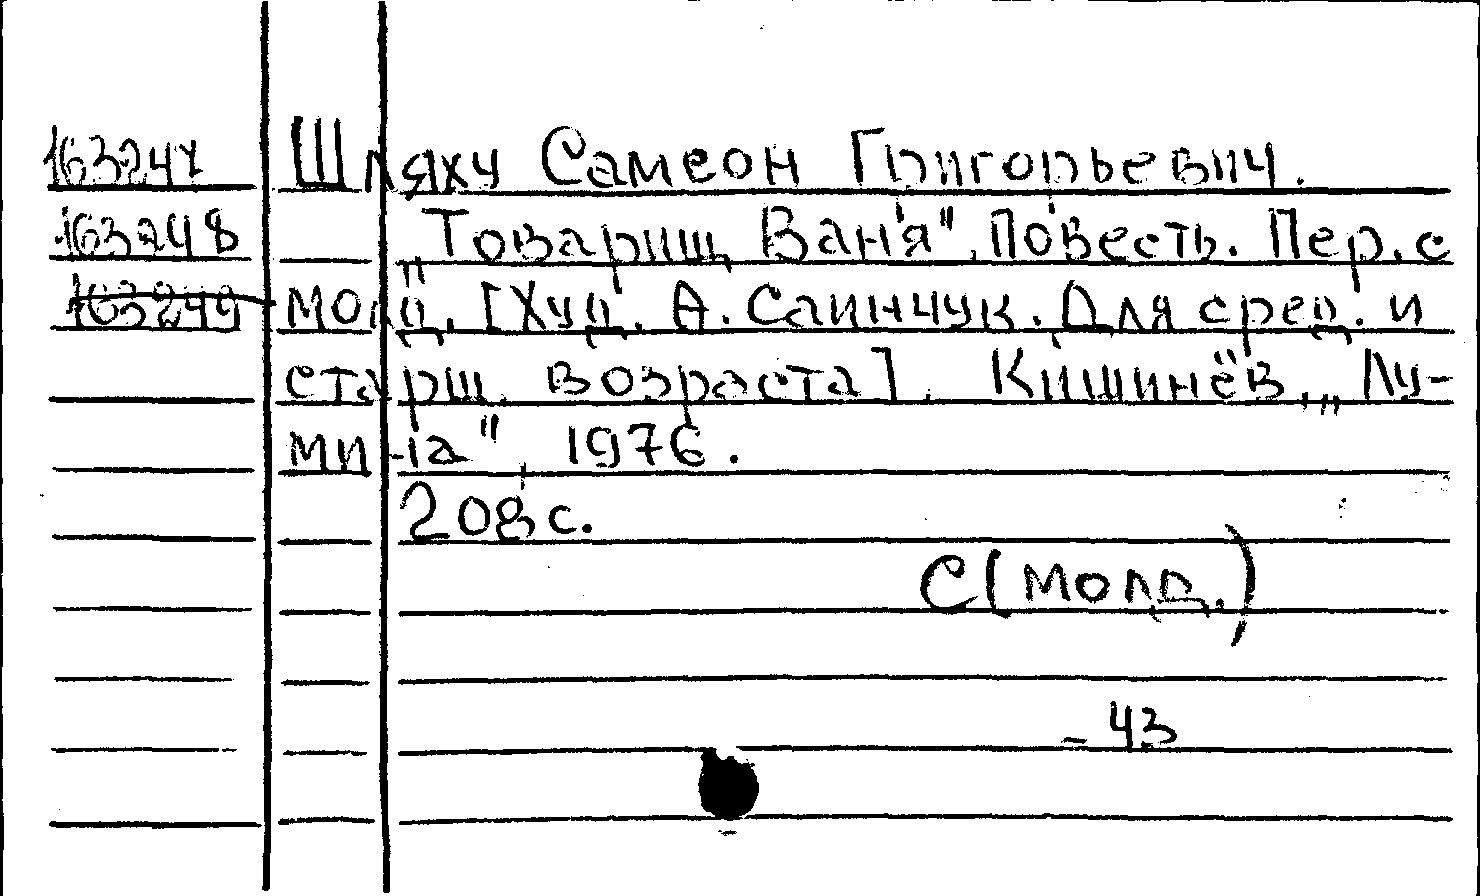 163247 Шляху Самсон Григорьевич.
163248 „Товарищ Ваня". Повесть. Пер. с
163249 молд. [Худ. А. Саинчук. Для сред. и
старш. возраста]. Кишинёв, „Лу-
мина", 1976.
208 с.
С(молд.)
- 43